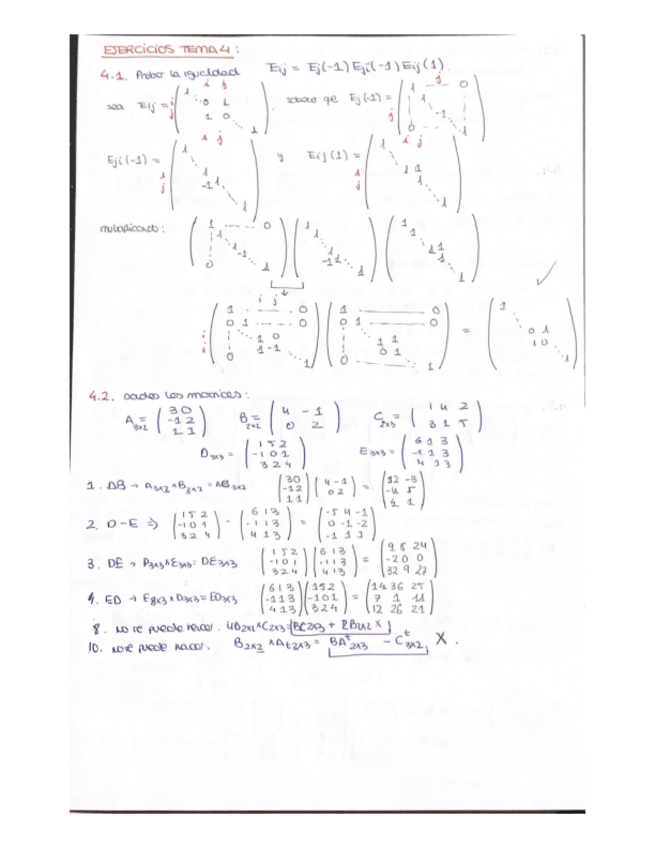 EJERCICIOS TEMA 4:
4.1. Probar la igualdad Eij = Ej(-1) Eji(-1) Eij(1).
i j
sea Eij = i j ( 1 0 1 1 0 1 ), sabemos que Ej(-1) = j ( 1 0 1 -1 0 1 )
i j
Eji(-1) = i j ( 1 1 -1 1 1 ) y Eij(1) = i j ( 1 1 1 1 1 )
multiplicando: ( 1 0 1 -1 0 1 ) ( 1 1 1 -1 1 1 ) ( 1 1 1 1 1 1 )
i j
( 1 0 0 1 0 1 0 1 -1 0 1 ) ( 1 0 0 1 0 1 1 0 1 0 1 ) = ( 1 0 1 1 0 1 )
4.2. dadas las matrices:
A 3x2 = ( 3 0 -1 2 1 1 ) B 2x2 = ( 4 -1 0 2 ) C 2x3 = ( 1 4 2 3 1 5 )
D 3x3 = ( 1 5 2 -1 0 1 3 2 4 ) E 3x3 = ( 6 1 3 -1 1 3 4 1 3 )
1. AB → A3x2 x B2x2 = AB3x2 ( 3 0 -1 2 1 1 ) ( 4 -1 0 2 ) = ( 12 -3 -4 5 4 1 )
2. D-E => ( 1 5 2 -1 0 1 3 2 4 ) - ( 6 1 3 -1 1 3 4 1 3 ) = ( -5 4 -1 0 -1 -2 -1 1 1 )
3. DE → D3x3 x E3x3 = DE3x3 ( 1 5 2 -1 0 1 3 2 4 ) ( 6 1 3 -1 1 3 4 1 3 ) = ( 9 8 24 -2 0 0 32 9 27 )
4. ED → E3x3 x D3x3 = ED3x3 ( 6 1 3 -1 1 3 4 1 3 ) ( 1 5 2 -1 0 1 3 2 4 ) = ( 14 36 25 7 1 11 12 26 21 )
8. No se puede hacer. 4B2x2 x C2x3 = BC2x3 + 2B2x2 X
10. no se puede hacer. B2x2 x At2x3 = BAt2x3 - Ct3x2, X.